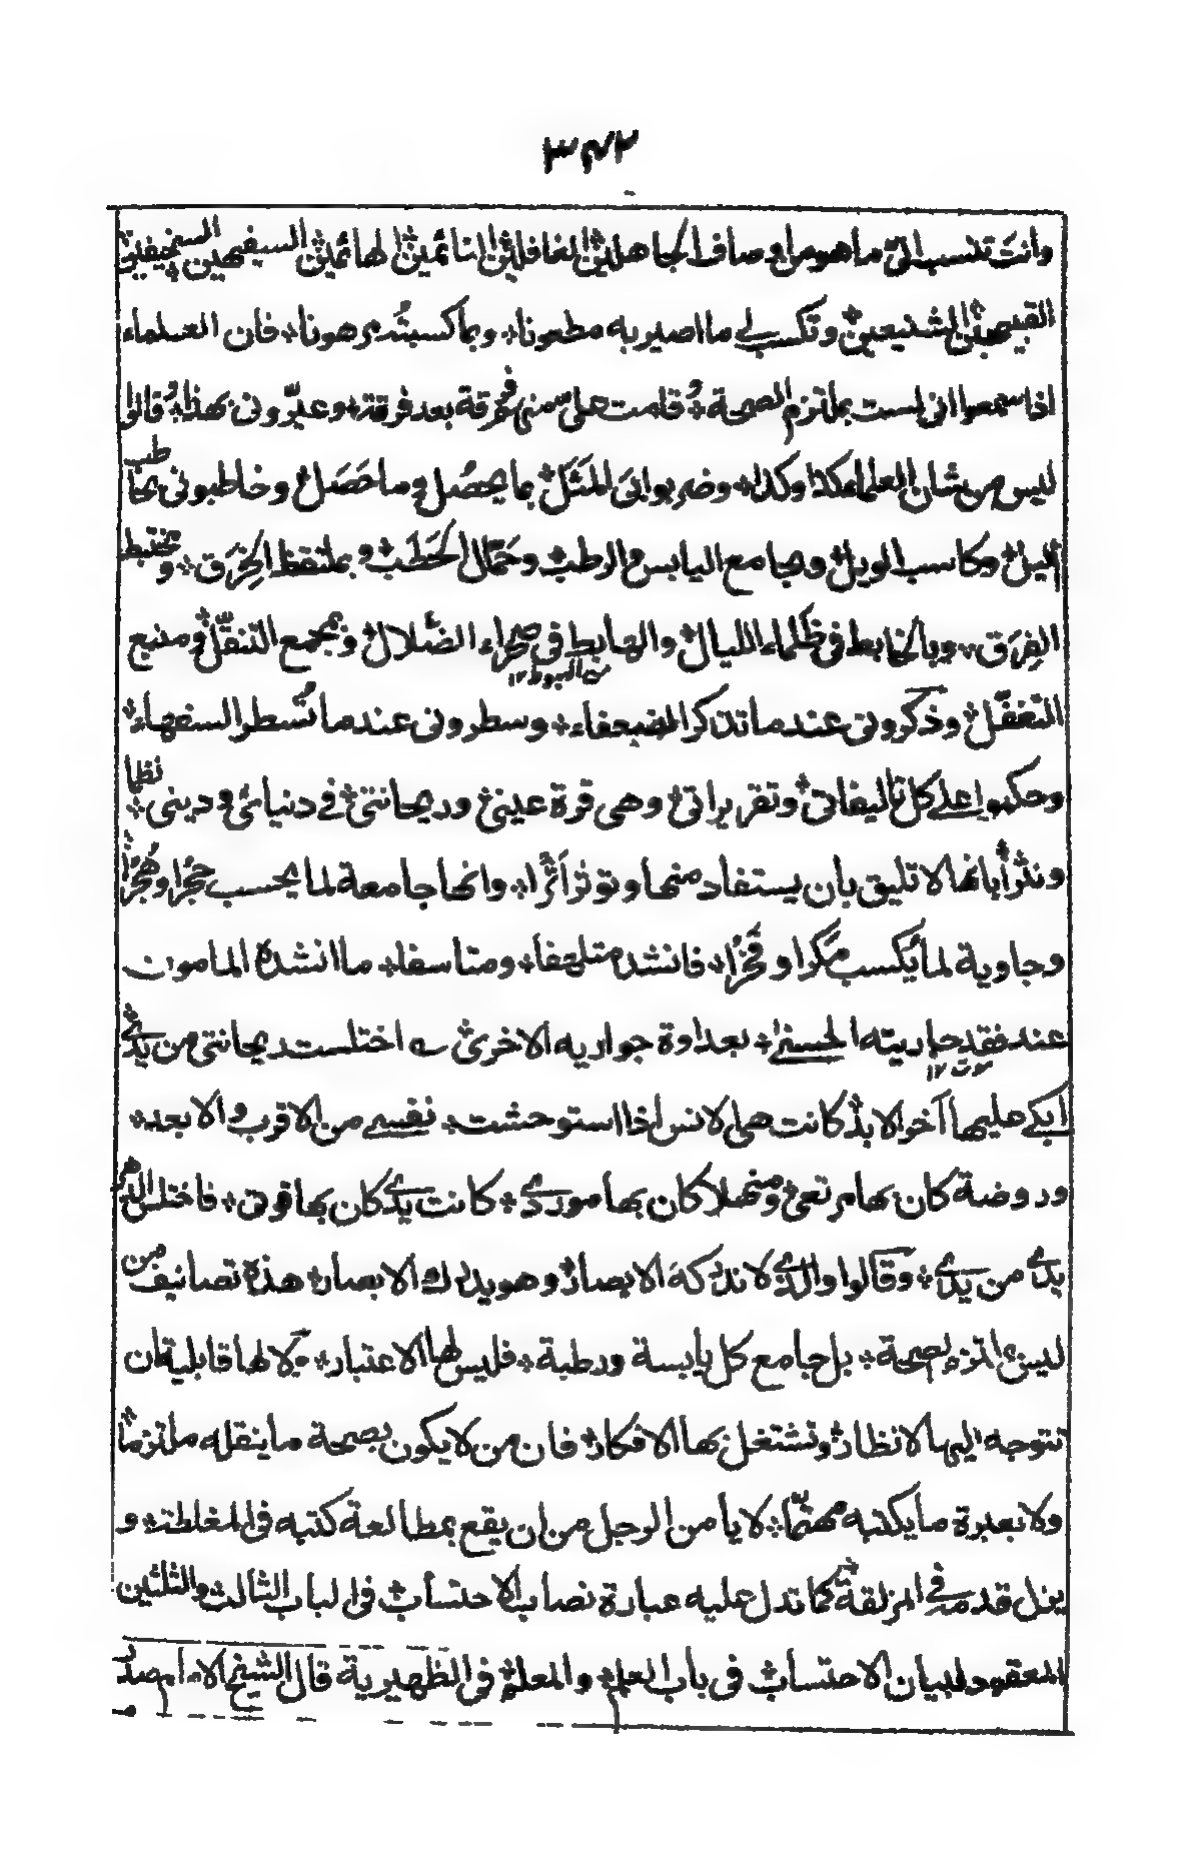 ٣٤٢
وانت تنسب الیّ ما هو من اوصاف الجاهلین الغافلین النائمین الهائمین السفیهین السخیفین
القبیحین الشنیعین وتکسب لی ما اصیر به مطعونا وبما کسبتُ مرهونا فان العلماء
اذا سمعوا انی لست بملتزم الصحة قامت علیّ منهم فرقة بعد فرقة وعیّرونی بهذا وقالوا
لیس من شان العلماء هکذا وکذا وضربوا بیَ المَثَل بما یحصُل وما حَصَل وخاطبونی بحاطب
اللیل وکاسب الویل وجامع الیابس والرطب وحَمّال الحَطَب وبملتقط الخِرَق ومختبط
الفِرَق وبالخابط فی ظلماء اللیال والهابط فی صحراء الضلال وبمجمع التنقّل ومنبع
من الهبوط ١٢
التغفّل وذکرونی عند ما تذکر الضعفاء وسطرونی عند ما تُسطر السفهاء
وحکموا علی کل تالیفاتی وتقریراتی وهی قرة عینی وریحانتی فی دنیائی ودینی نظما
ونثرا بانها لا تلیق بان یستفاد منها وتوثر اَثَرا وانها جامعة لما یحسب حِجْرا وهُجْرا
وحاویة لما یکسب مَکرا وفَخْرا فانشد متلهفا ومتاسفا ما انشده المامون
عند فقد جاریته الحسنی بعداوة جواریه الاخری ؎ اختلست ریحانتی من یدی
موت ١٢
ابکی علیها آخر الابد کانت هی الانس اذا استوحشت نفسی من الاقرب والابعد
وروضة کان بها مرتعی ومنهلا کان بها موردی کانت یدی کان بها قوتی فاختلس الدهر
یدی من یدی وقالوا والذی لا تدرکه الابصار وهو یدرک الابصار هذه تصانیف من
لیس بملتزم لصحة بل جامع کل یابسة ورطبة فلیس لها الاعتبار ولا لها قابلیة ان
تتوجه الیها الانظار وتشتغل بها الافکار فان من لا یکون بصحة ما ینقله ملتزما
ولا بعبرة ما یکتبه مهتمّا لا یأمن الرجل من ان یقع بمطالعة کتبه فی المغلطة و
یزل قدمه فی المزلقة کما تدل علیه عبارة نصاب الاحتساب فی الباب الثالث والثلثین
المعقود لبیان الاحتساب فی باب العلم والمعلم فی الظهیریة قال الشیخ الامام صدر